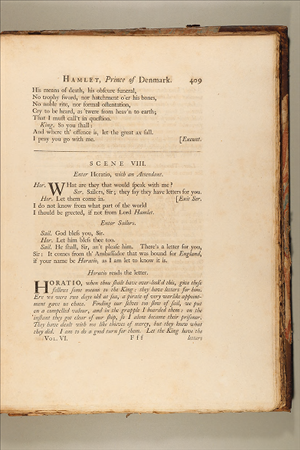 HAMLET, Prince of Denmark. 409
His means of death, his obscure funeral,
No trophy sword, nor hatchment o'er his bones,
No noble rite, nor formal ostentation,
Cry to be heard, as 'twere from heav'n to earth;
That I must call't in question.
King. So you shall:
And where th' offence is, let the great ax fall.
I pray you go with me. [Exeunt.
SCENE VIII.
Enter Horatio, with an Attendant.
Hor. WHat are they that would speak with me?
Ser. Sailors, Sir; they say they have letters for you.
Hor. Let them come in. [Exit Ser.
I do not know from what part of the world
I should be greeted, if not from Lord Hamlet.
Enter Sailors.
Sail. God bless you, Sir.
Hor. Let him bless thee too.
Sail. He shall, Sir, an't please him. There's a letter for you,
Sir: It comes from th' Ambassador that was bound for England,
if your name be Horatio, as I am let to know it is.
Horatio reads the letter.
HORATIO, when thou shalt have over-look'd this, give these
fellows some means to the King: they have letters for him.
Ere we were two days old at sea, a pirate of very warlike appoint-
ment gave us chace. Finding our selves too slow of sail, we put
on a compelled valour, and in the grapple I boarded them: on the
instant they got clear of our ship, so I alone became their prisoner.
They have dealt with me like thieves of mercy, but they knew what
they did. I am to do a good turn for them. Let the King have the
VOL. VI. Fff letters